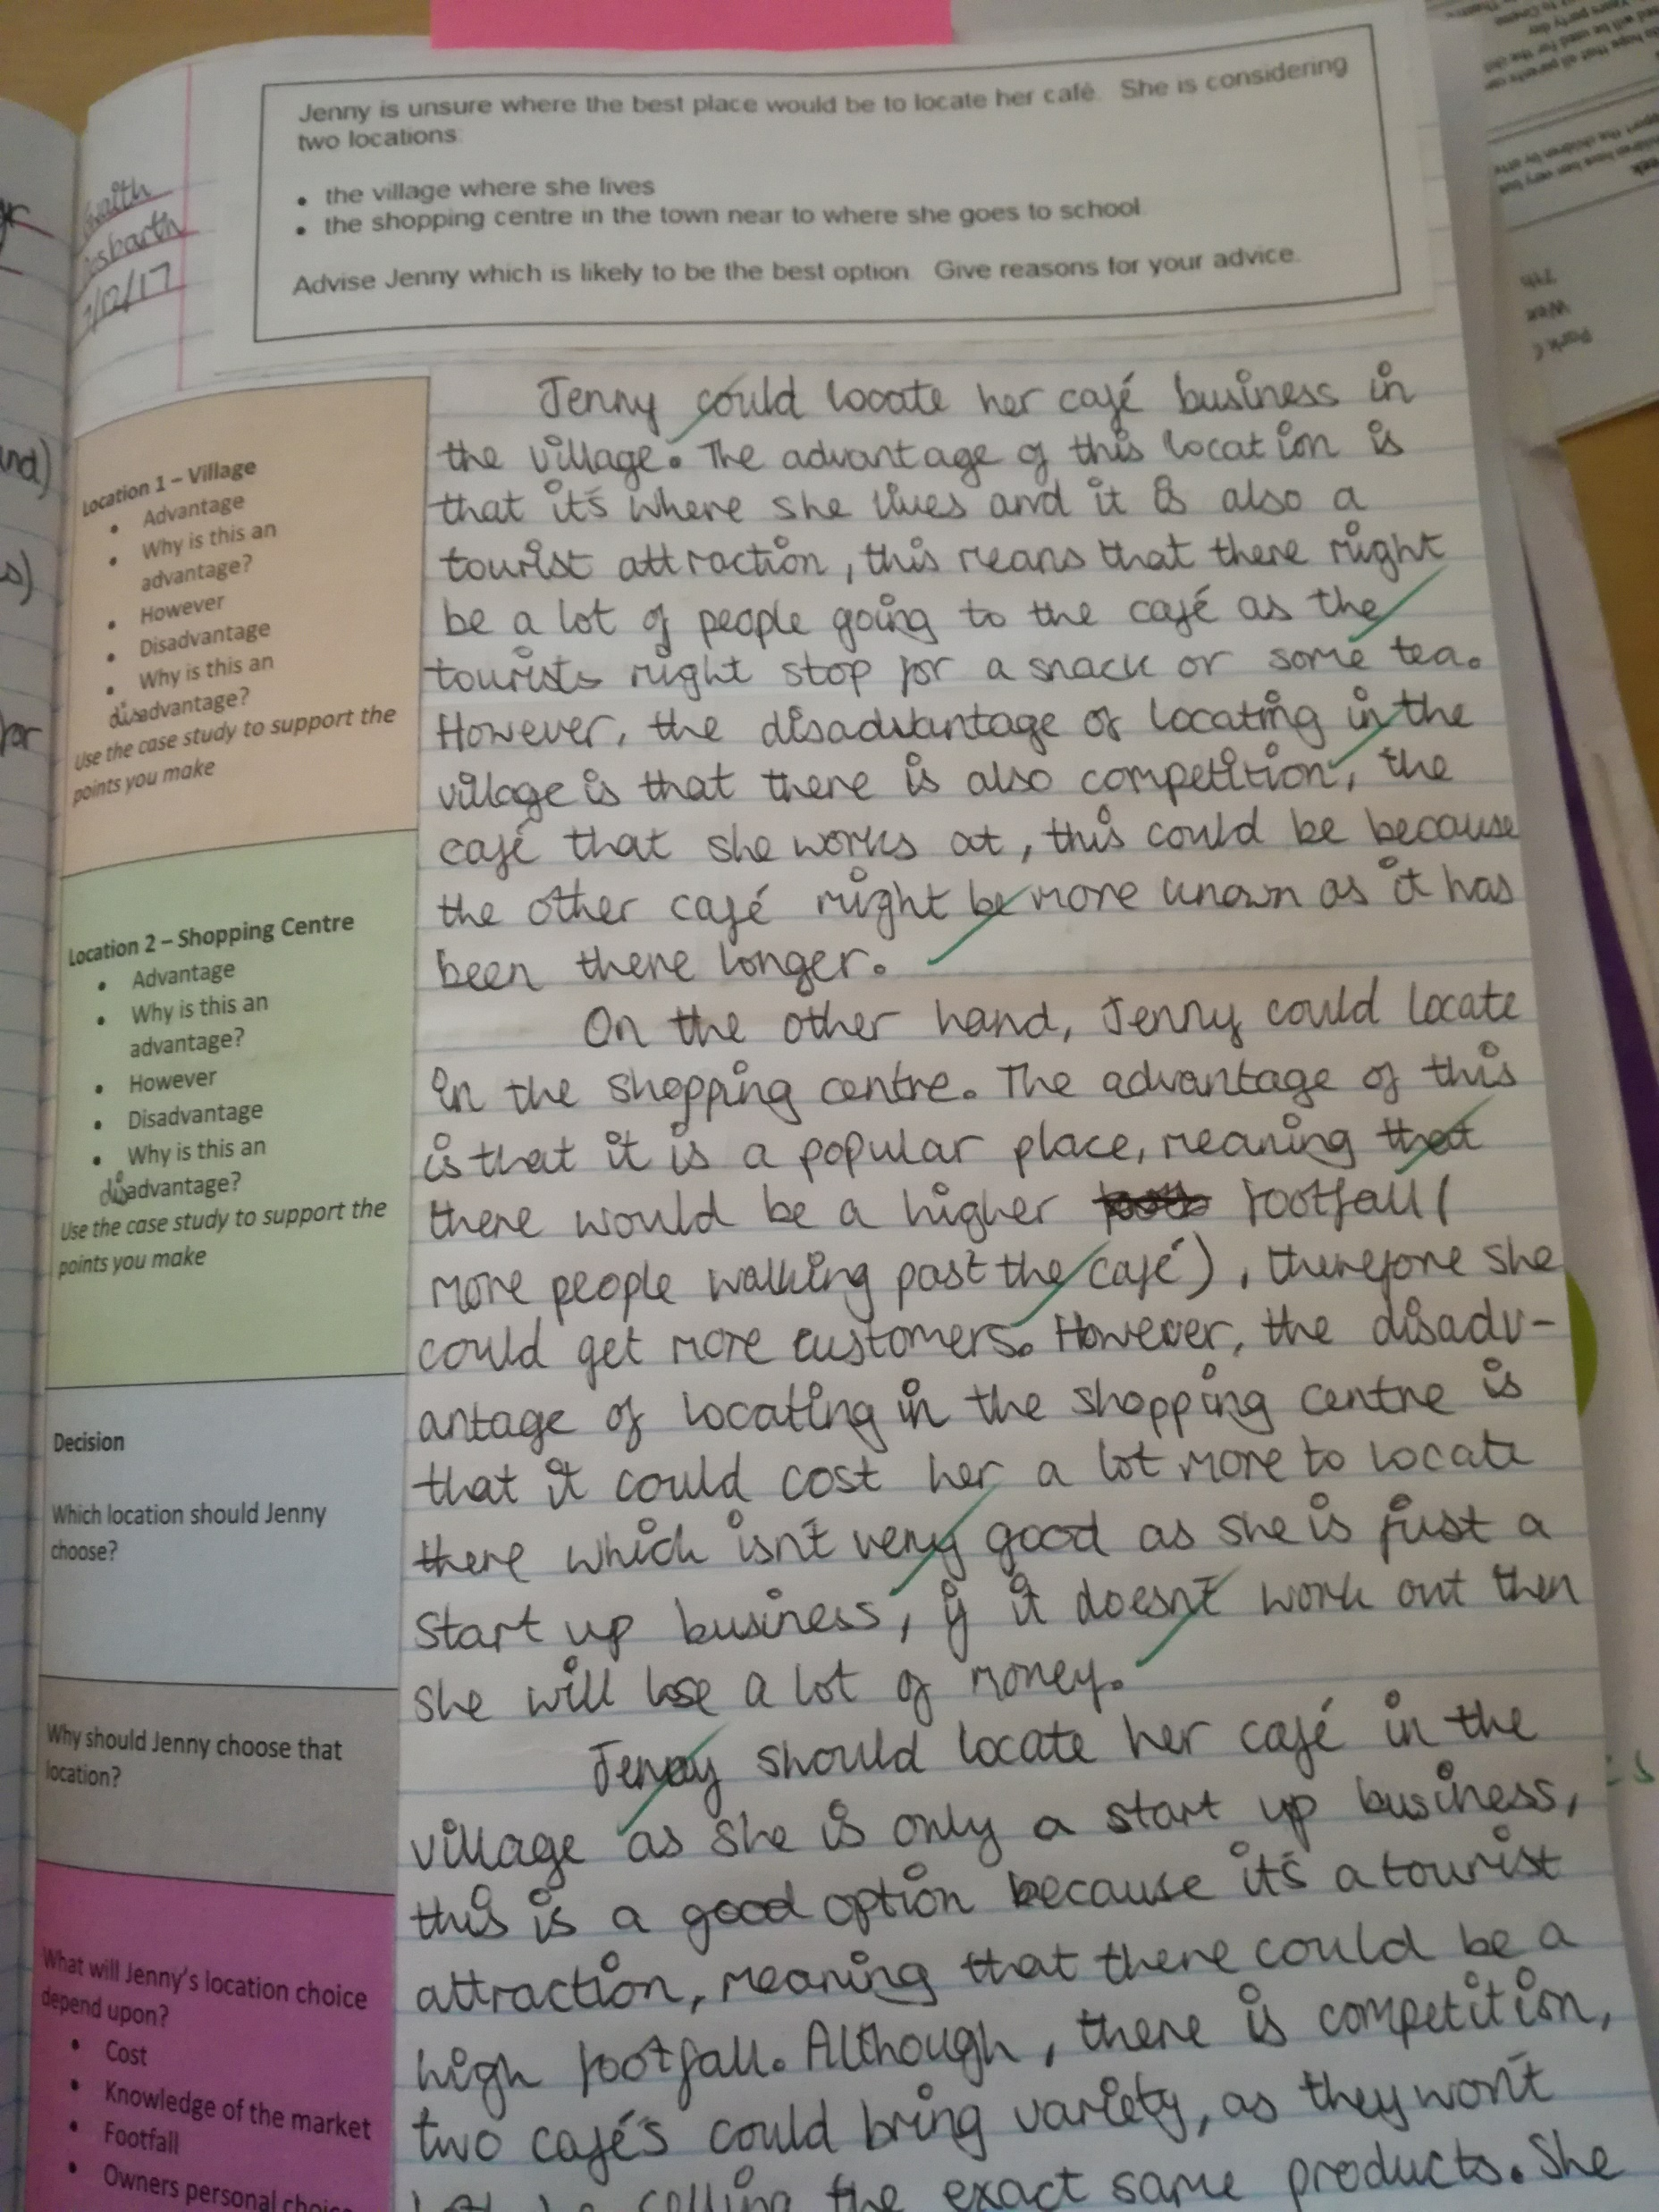 Jenny is unsure where the best place would be to locate her café. She is considering
two locations:
• the village where she lives
• the shopping centre in the town near to where she goes to school.
Advise Jenny which is likely to be the best option. Give reasons for your advice.
Location 1 – Village
• Advantage
• Why is this an
advantage?
• However
• Disadvantage
• Why is this an
disadvantage?
Use the case study to support the
points you make
Location 2 – Shopping Centre
• Advantage
• Why is this an
advantage?
• However
• Disadvantage
• Why is this an
disadvantage?
Use the case study to support the
points you make
Decision
Which location should Jenny
choose?
Why should Jenny choose that
location?
What will Jenny's location choice
depend upon?
• Cost
• Knowledge of the market
• Footfall
• Owners personal
Jenny could locate her café business in
the village. The advantage of this location is
that it's where she lives and it is also a
tourist attraction, this means that there might
be a lot of people going to the café as the
tourists might stop for a snack or some tea.
However, the disadvantage of locating in the
village is that there is also competition, the
café that she works at, this could be because
the other café might be more known as it has
been there longer.
On the other hand, Jenny could locate
in the shopping centre. The advantage of this
is that it is a popular place, meaning that
there would be a higher footfall (
more people walking past the café), therefore she
could get more customers. However, the disadv-
antage of locating in the shopping centre is
that it could cost her a lot more to locate
there which isn't very good as she is just a
start up business, if it doesn't work out then
she will lose a lot of money.
Jenny should locate her café in the
village as she is only a start up business,
this is a good option because it's a tourist
attraction, meaning that there could be a
high footfall. Although, there is competition,
two café's could bring variety, as they won't
selling the exact same products. She